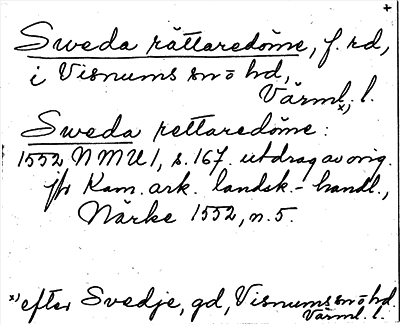 +
Sweda rättaredöme, f. rd,
i Visnums sn o hd,
Värml.x) l.
Sweda rettaredöme:
1552 NMU 1, s. 167. utdrag av orig.
jfr Kam. ark. landsk.-handl.,
Närke 1552, n. 5.
x) efter Svedje, gd, Visnums sn o hd
Värml. l.